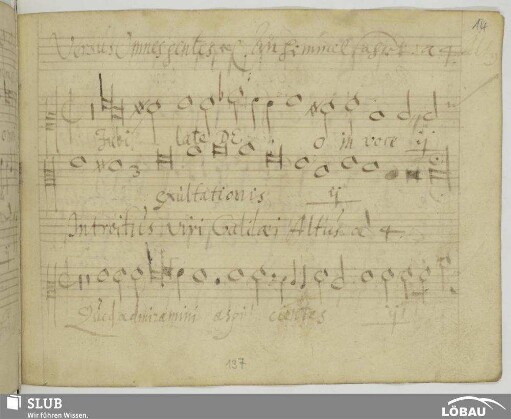 14
Versus Omnes gentes
a 4
Jubi late DE o in voce ij
exultationis ij
Introitus Viri Galilæi Altus a 4
Quid admiramini aspi cientes ij
137
SLUB
Wir führen Wissen.
LÖBAU